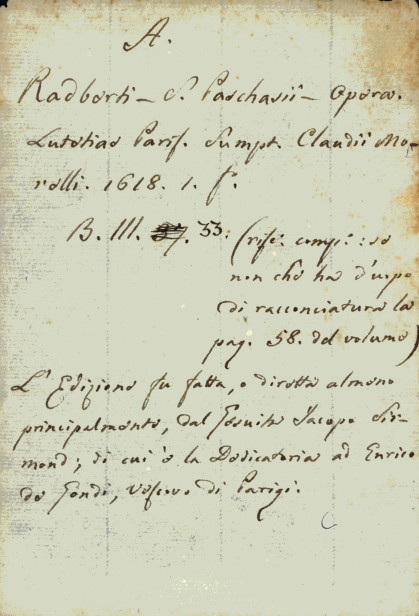 A.
Radberti – S. Paschasii – Opera.
Lutetiae Paris. Sumpt. Claudii Mo-
relli. 1618. 1. f.
B. III. 33. (rife: comp: se
non che ha d'uopo
di racconciatura la
pag. 58. del volume)
L'Edizione fu fatta, o diretta almeno
principalmente, dal Gesuita Jacopo Sir-
mond; di cui è la Dedicatoria ad Enrico
de Gondi, Vescovo di Parigi.